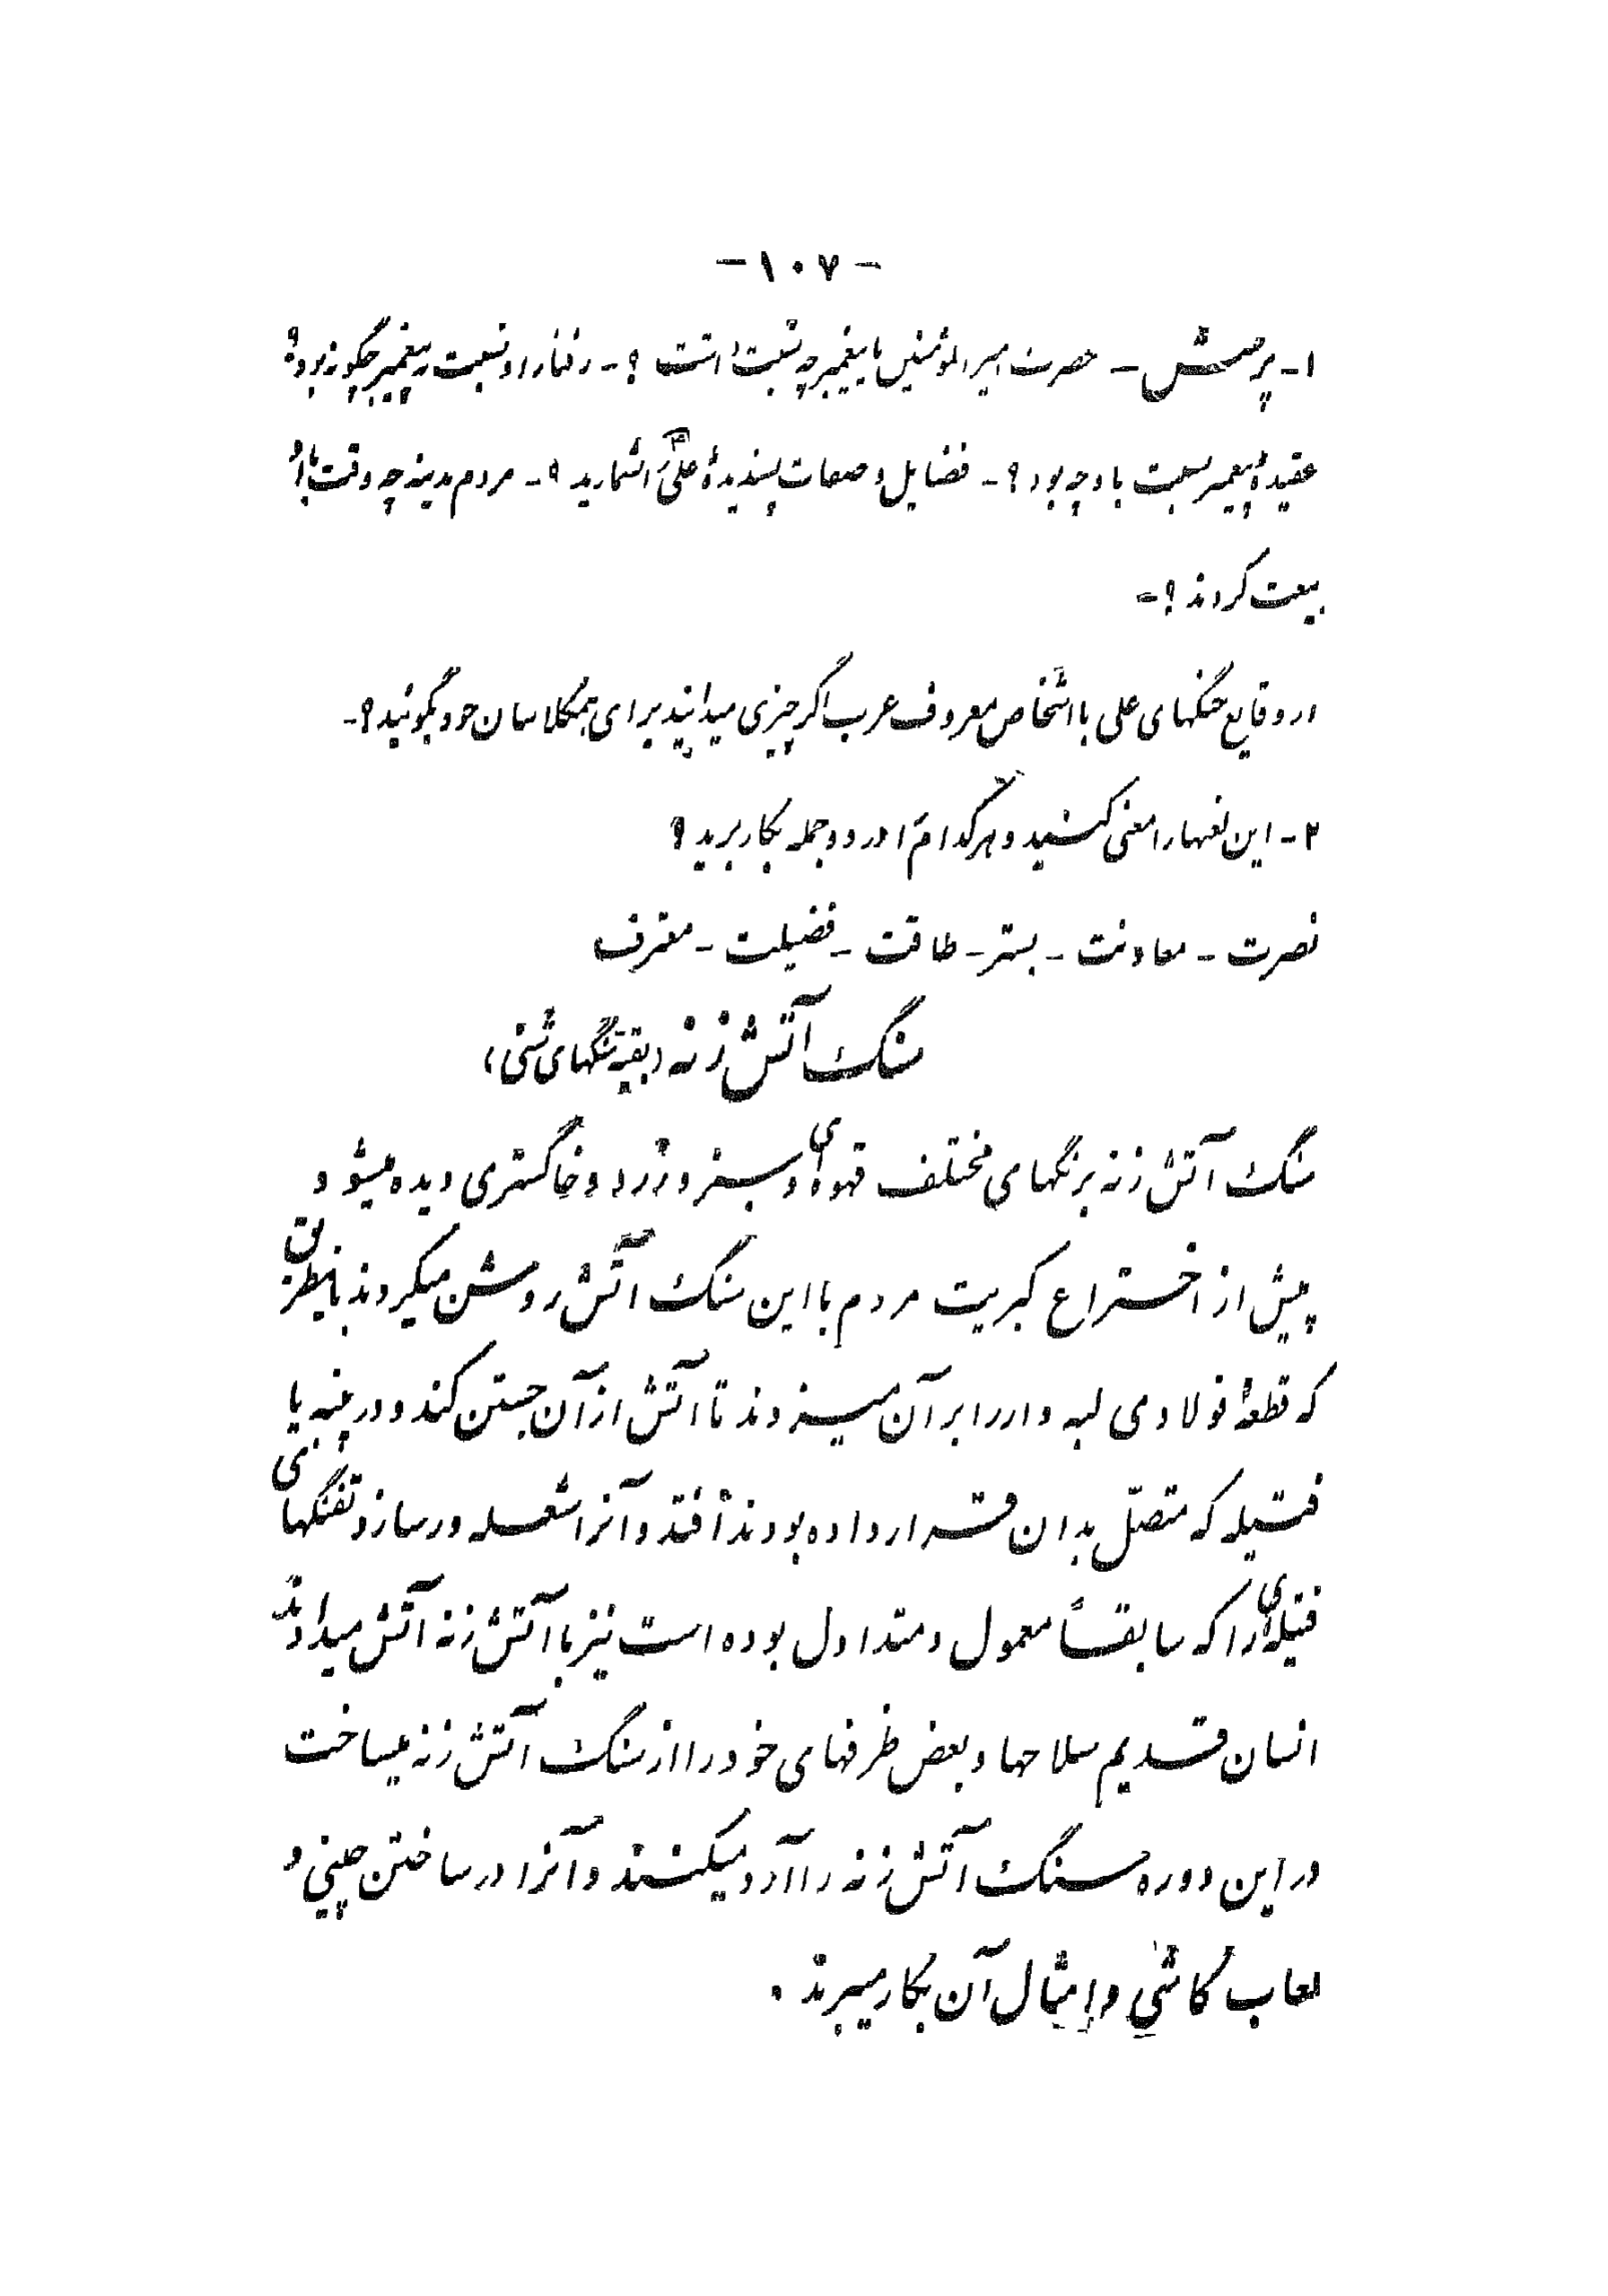 -۱۰۷-
۱- پرسش - حضرت امیرالمؤمنین با پیغمبر چه نسبت داشت ؟- رفتار او نسبت به پیغمبر چگونه بود؟
عقیدهٔ پیغمبر نسبت باو چه بود ؟- فضایل و صفات پسندیدهٔ علی را بشمارید ؟- مردم مدینه چه وقت با او
بیعت کردند ؟-
از وقایع جنگهای علی با اشخاص معروف عرب اگر چیزی میدانید برای همکلاسان خود بگوئید ؟-
۲- این لغتها را معنی کنید و هر کدام را در دو جمله بکار برید ؟
نصرت - معاونت - بستر - طاقت - فضیلت - معترف
سنگ آتش زنه (بقیه سنگهای شنی)
سنگ آتش زنه برنگهای مختلف قهوه‌ای و سبز و زرد و خاکستری دیده میشود
پیش از اختراع کبریت مردم با این سنگ آتش روشن میکردند باینطریق
که قطعهٔ فولادی لبه دار را بر آن میزدند تا آتش از آن جستن کند و در پنبه یا
فتیله که متصل بدان قرار داده بودند افتد و آنرا شعله ور سازد تفنگهای
فتیله‌ای را که سابقاً معمول و متداول بوده است نیز با آتش زنه آتش میدادند
انسان قدیم سلاحها و بعض ظرفهای خود را از سنگ آتش زنه میساخت
در این دوره سنگ آتش زنه را آرد میکنند و آنرا در ساختن چینی و
لعاب کاشی و امثال آن بکار میبرند .